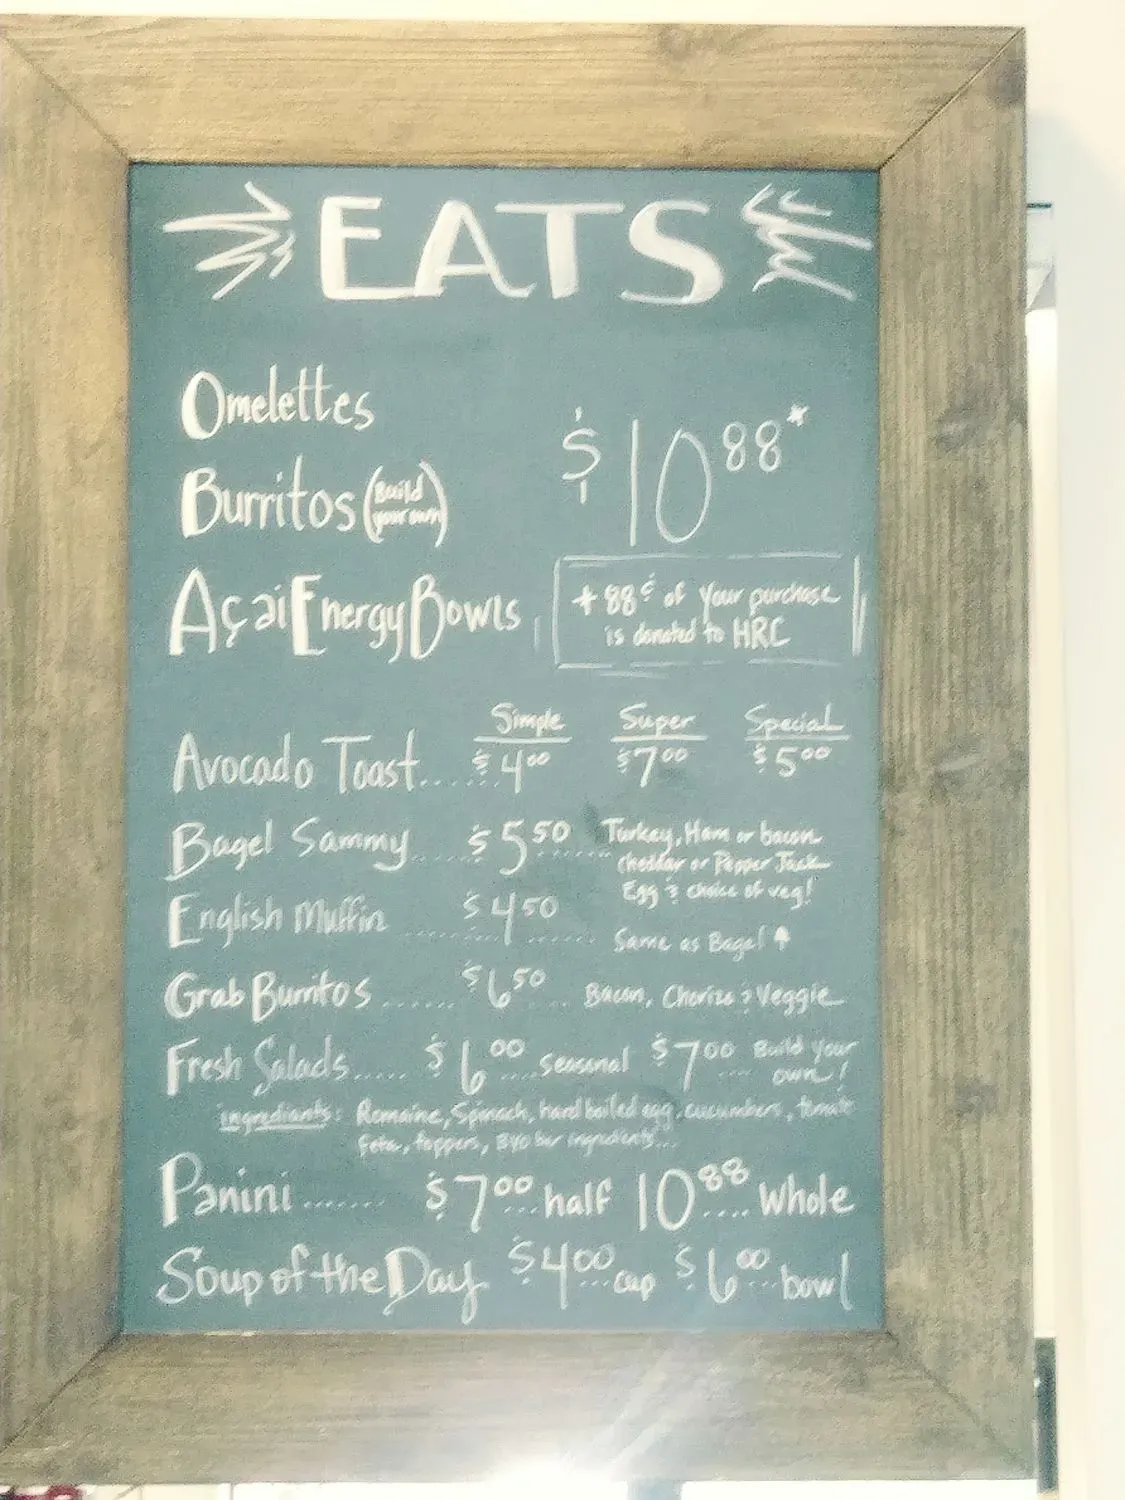 EATS
Omelettes
Burritos (Build your own)
$10 88*
Açai Energy Bowls
+ 88¢ of your purchase
is donated to HRC
Simple Super Special
Avocado Toast.... $4 00 $7 00 $5 00
Bagel Sammy.... $5 50 ...... Turkey, Ham or bacon
cheddar or Pepper Jack
Egg & choice of veg!
English Muffin ...... $4 50 ......
Same as Bagel ↑
Grab Burritos ...... $6 50 .... Bacon, Chorizo & Veggie
Fresh Salads..... $6 00 .... Seasonal $7 00 .... Build your
own!
ingrediants: Romaine, Spinach, hard boiled egg, cucumbers, tomato
feta, toppers, BYO bar ingredients...
Panini ....... $7 00 ... half 10 88 .... whole
Soup of the Day $4 00 ... cup $6 00 ... bowl